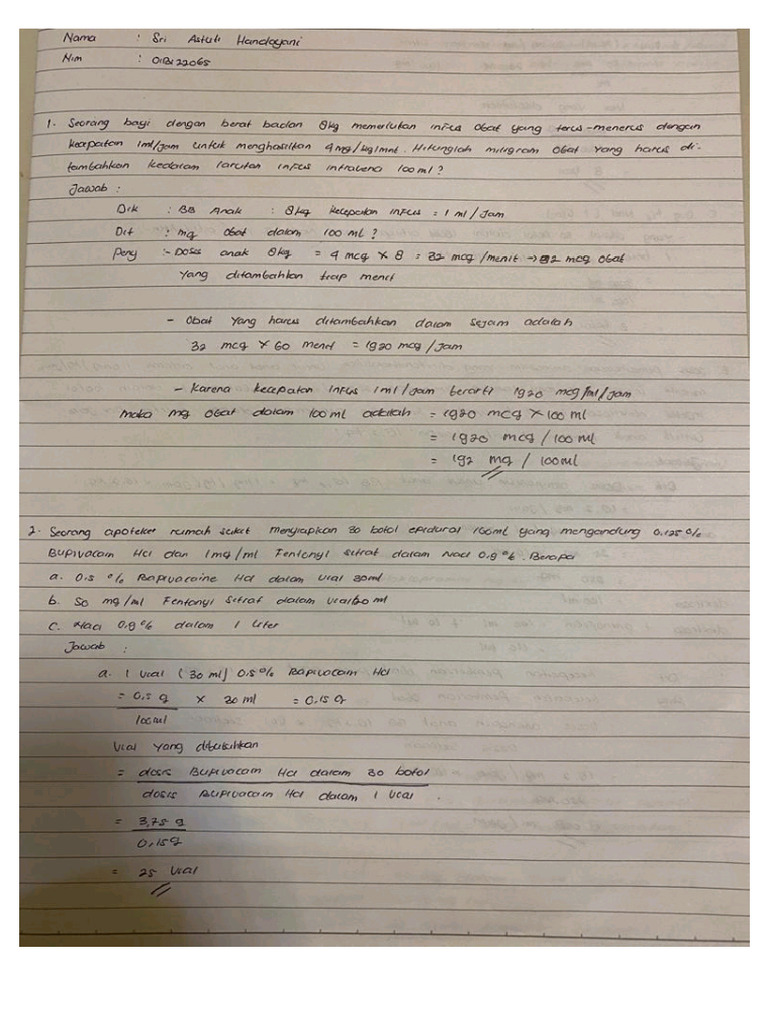 Nama : Sri Astuti Handayani
Nim : O1B122065
1. Seorang bayi dengan berat badan 8kg memerlukan infus obat yang terus-menerus dengan
kecepatan 1ml/jam untuk menghasilkan 4mg/kg/mnt. Hitunglah miligram obat yang harus di-
tambahkan kedalam larutan infus intravena 100ml?
Jawab :
Dik : BB Anak : 8kg kecepatan infus = 1 ml/jam
Dit : mg obat dalam 100 ml?
Peny :- Dosis anak 8kg = 4 mcg x 8 = 32 mcg/menit → 32 mcg obat
yang ditambahkan tiap menit
- Obat yang harus ditambahkan dalam sejam adalah
32 mcg x 60 menit = 1920 mcg/jam
- Karena kecepatan infus 1ml/jam berarti 1920 mcg/ml/jam
maka mg obat dalam 100 ml adalah = 1920 mcg x 100 ml
= 1920 mcg/100 ml
= 192 mg/100ml
2. Seorang apoteker rumah sakit menyiapkan 30 botol epidural 100ml yang mengandung 0.125%
Bupivacain Hcl dan 1mg/ml Fentanyl sitrat dalam Nacl 0.9%. Berapa
a. 0.5 % Bapivacaine Hcl dalam vial 30ml
b. 50 mg/ml Fentanyl Sitrat dalam vial 20 ml
c. Nacl 0.9% dalam 1 Liter
Jawab :
a. 1 vial (30 ml) 0.5% Bapivacain Hcl
= 0,5 g x 30 ml = 0.15 g
100ml
Vial yang dibutuhkan
= dosis Bupivacain Hcl dalam 30 botol
dosis Bupivacain Hcl dalam 1 vial.
= 3,75 g
0,15g
= 25 vial